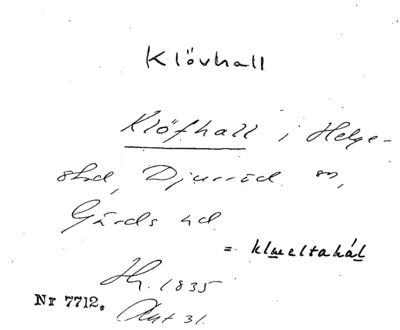 Klövhall
Klöfhall i Helge-
stad, Djurröd sn,
Gärds hd
= klweltahál
Hy. 1835
Akt 31.
Nr 7712.